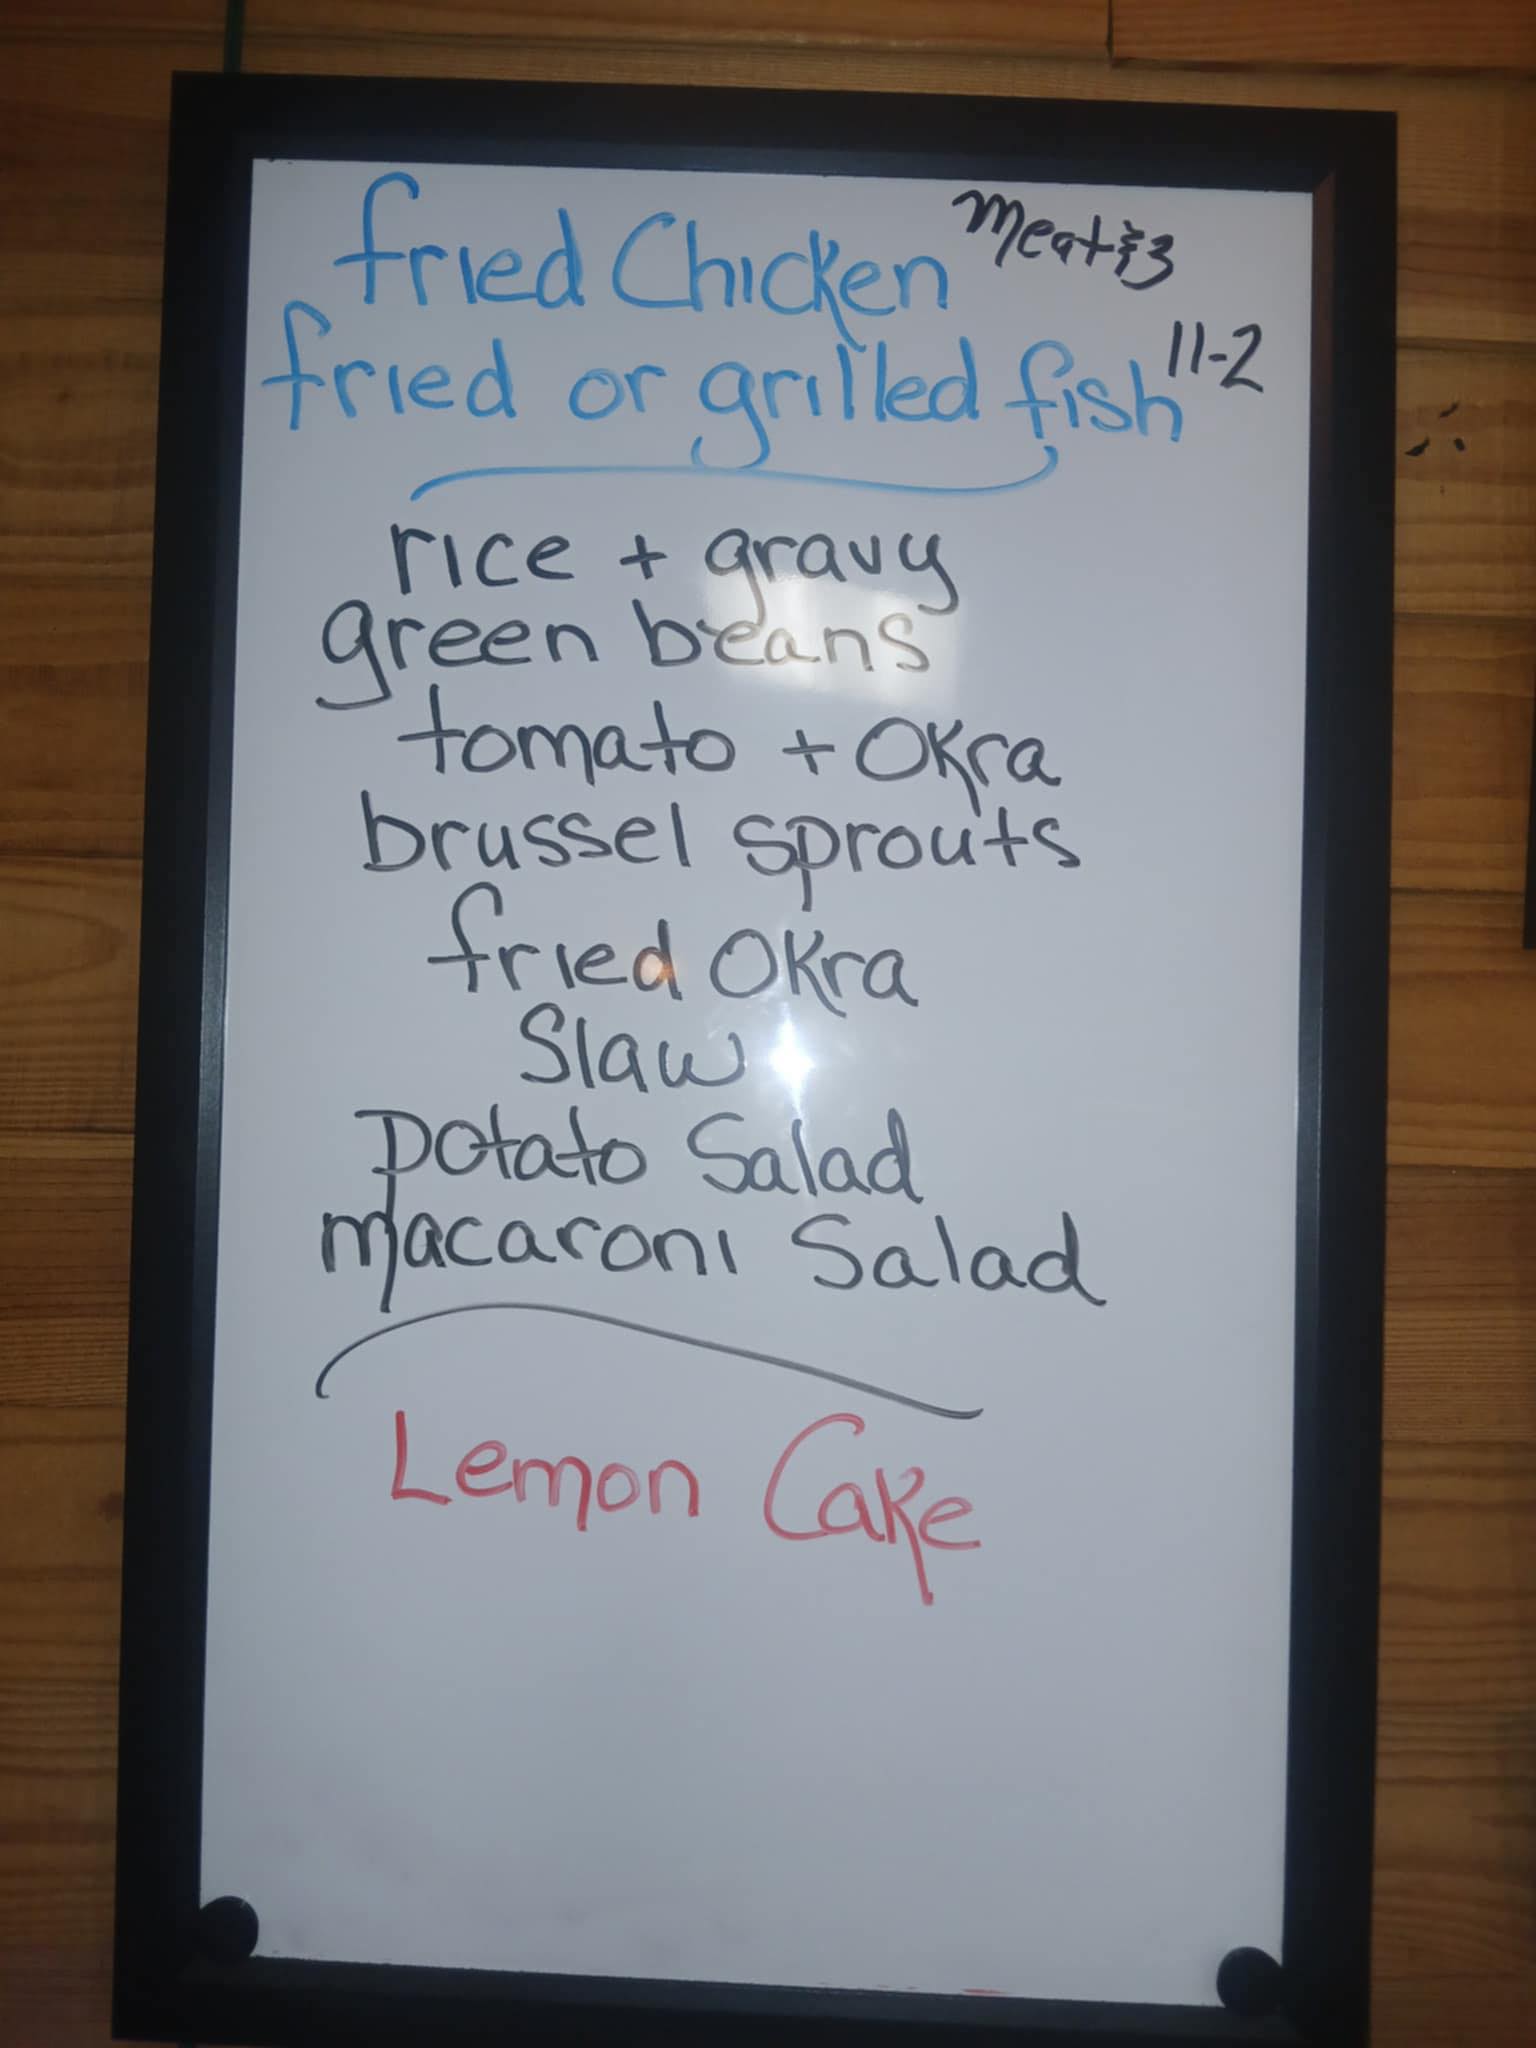 fried Chicken
Meat & 3
fried or grilled fish
11-2
rice + gravy
green beans
tomato + Okra
brussel sprouts
fried Okra
Slaw
potato Salad
macaroni Salad
Lemon Cake